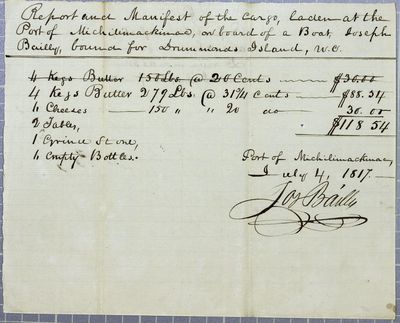 Report and Manifest of the Cargo, laden at the
Port of Michilimackinac, on board of a Boat, Joseph
Bailly, bound for Drummonds Island, U.C.
4 Kegs Butter 150 Lbs. @ 20 Cents $30.00
4 Kegs Butter 279 Lbs. @ 31 3/4 Cents $88.54
6 Cheeses 150 " " 20 do 30.00
$118 54
2 Tables,
1 Grind Stone,
6 Empty Bottles.
Port of Michilimackinac,
July 4, 1817.
Jos Bailly